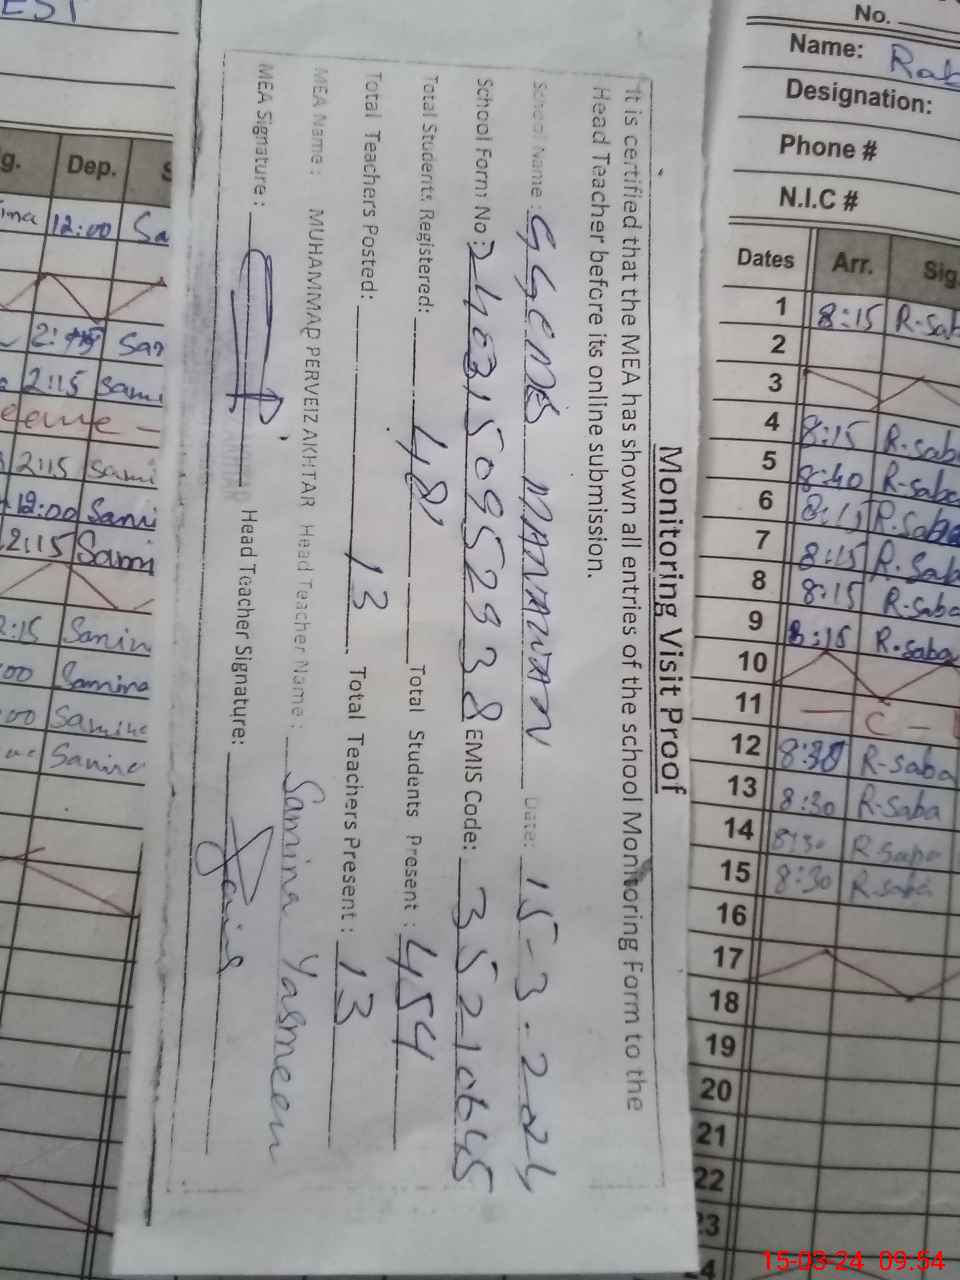 Monitoring Visit Proof
It is certified that the MEA has shown all entries of the school Monitoring Form to the
Head Teacher before its online submission.
School Name: MANAWAN Date: 15-3-2024
School Form No: EMIS Code: 35210645
Total Students Registered: Total Students Present: 454
Total Teachers Posted: 13 Total Teachers Present: 13
MEA Name: MUHAMMAD PERVEIZ AKHTAR Head Teacher Name: Samina Yasmeen
MEA Signature: Head Teacher Signature:
Dep.
12:00
2:15
2:15
12:00
2:15 Sami
Samina
No.
Name:
Designation:
Phone #
N.I.C #
Dates Arr. Sig.
1 8:15 R-sab
2
3
4 8:15 R-saba
5 8:40 R-saba
6 8:15 R.saba
7 8:15 R.Sab
8 8:15 R-saba
9 8:15 R-saba
10
11 - C -
12 8:30 R-saba
13 8:30 R-saba
14 8:30 R saba
15 8:30 R-saba
16
17
18
19
20
21
22
23
24
15-03-24 09:54